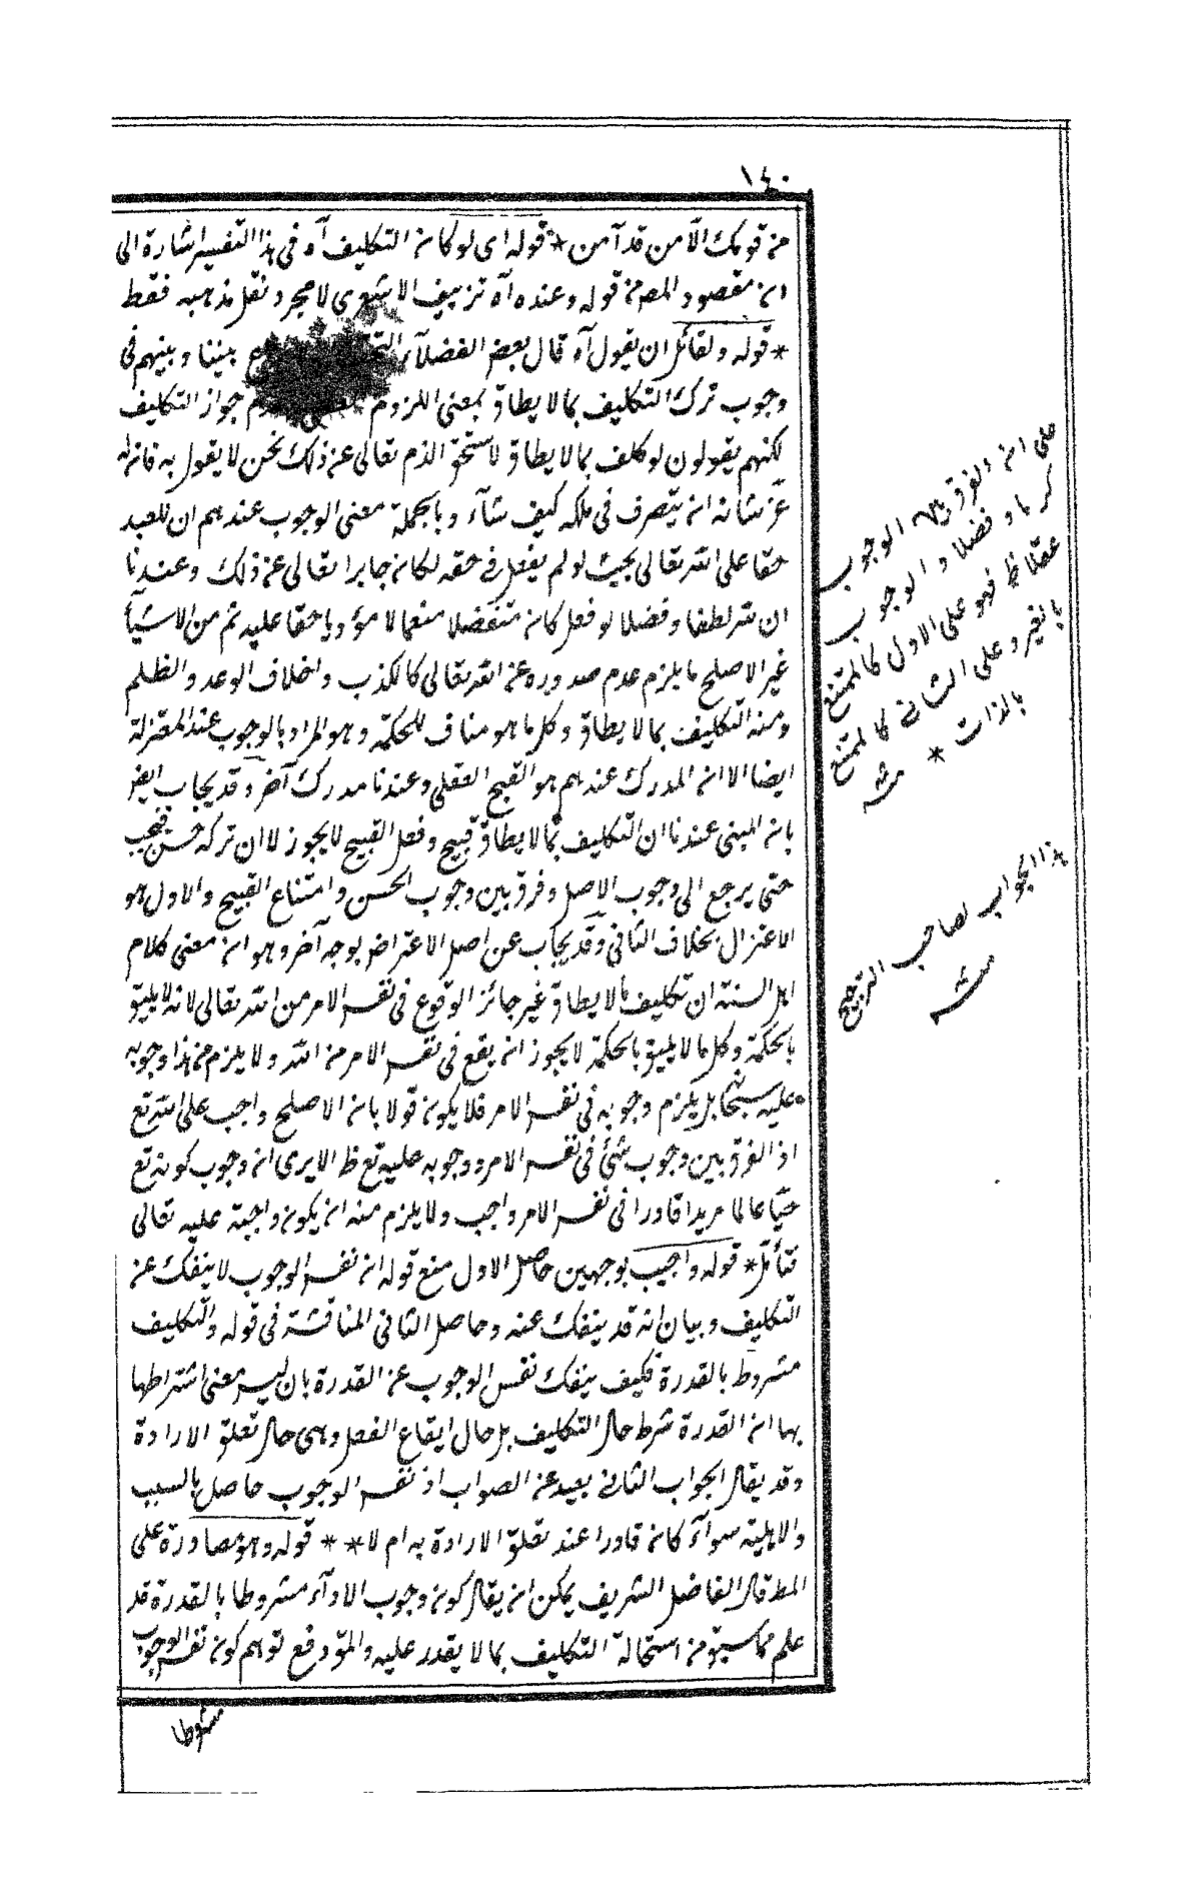 ١٤٠
من قومك الا من قد آمن * قوله اى لو كان التكليف آه فى هذا التفسير اشارة الى
ان مقصود المص من قوله وعنده آه تزييف الاشعرى لا مجرد نقل مذهبه فقط
* قوله ولقائل ان يقول آه قال بعض الفضلاء بيننا وبينهم فى
وجوب ترك التكليف بما لا يطاق بمعنى اللزوم جواز التكليف
لكنهم يقولون لو كلف بما لا يطاق لاستحق الذم تعالى عن ذلك نحن لا نقول به فانه
عز شانه ان يتصرف فى ملكه كيف شاء وبالجملة معنى الوجوب عندهم ان للعبد
حقا على الله تعالى بحيث لو لم يفعل فى حقه لكان جابرا تعالى عن ذلك وعندنا
ان لله لطفا وفضلا لو فعل كان متفضلا منعما لا مؤديا حقا عليه ثم من الاشياء
غير الاصلح ما يلزم عدم صدوره عن الله تعالى كالكذب واخلاف الوعد والظلم
ومنه التكليف بما لا يطاق وكل ما هو مناف للحكمة وهو المراد بالوجوب عند المعتزلة
ايضا الا ان المدرك عندهم هو القبح العقلى وعندنا مدرك آخر وقد يجاب ايض
بان المبنى عندنا ان التكليف بما لا يطاق قبيح وفعل القبيح لا يجوز لا ان تركه حسن فيجب
حتى يرجع الى وجوب الاصل وفرق بين وجوب الحسن وامتناع القبيح والاول هو
الاعتزال بخلاف الثانى وقد يجاب عن اصل الاعتراض بوجه آخر وهو ان معنى كلام
اهل السنة ان تكليف ما لا يطاق غير جائز الوقوع فى نفس الامر من الله تعالى لانه لا يليق
بالحكمة وكل ما لا يليق بالحكمة لا يجوز ان يقع فى نفس الامر من الله ولا يلزم من هذا وجوبه
عليه سبحانه بل يلزم وجوبه فى نفس الامر فلا يكون قولا بان الاصلح واجب على الله تع
اذ الفرق بين وجوب شئ فى نفس الامر ووجوبه عليه تع ظ الا يرى ان وجوب كونه تع
حيا عالما مريدا قادرا فى نفس الامر واجب ولا يلزم منه ان يكون واجبة عليه تعالى
فتأمل * قوله واجيب بوجهين حاصل الاول منع قوله ان نفس الوجوب لا ينفك عن
التكليف وبيان انه قد ينفك عنه وحاصل الثانى المناقشة فى قوله والتكليف
مشروط بالقدرة فكيف ينفك نفس الوجوب عن القدرة بان ليس معنى اشتراطها
بها ان القدرة شرط حال التكليف بل حال ايقاع الفعل وهى حال تعلق الارادة
وقد يقال الجواب الثانى بعيد عن الصواب اذ نفس الوجوب حاصل بالسبب
والاهلية سواء كان قادرا عند تعلق الارادة به ام لا * * قوله وهو مصادرة على
المط قال الفاضل الشريف يمكن ان يقال كون وجوب الاداء مشروطا بالقدرة قد
علم مما سبق من استحالة التكليف بما لا يقدر عليه والمق دفع توهم كون نفس الوجوب
مشروطا
على انه والفرق الوجوب
كرما وفضلا والوجوب
عقلا ظ فهو على الاول كالممتنع
بالغير وعلى الثانى كالممتنع
بالذات *
منه
هذا الجواب لصاحب الترجيح
منه